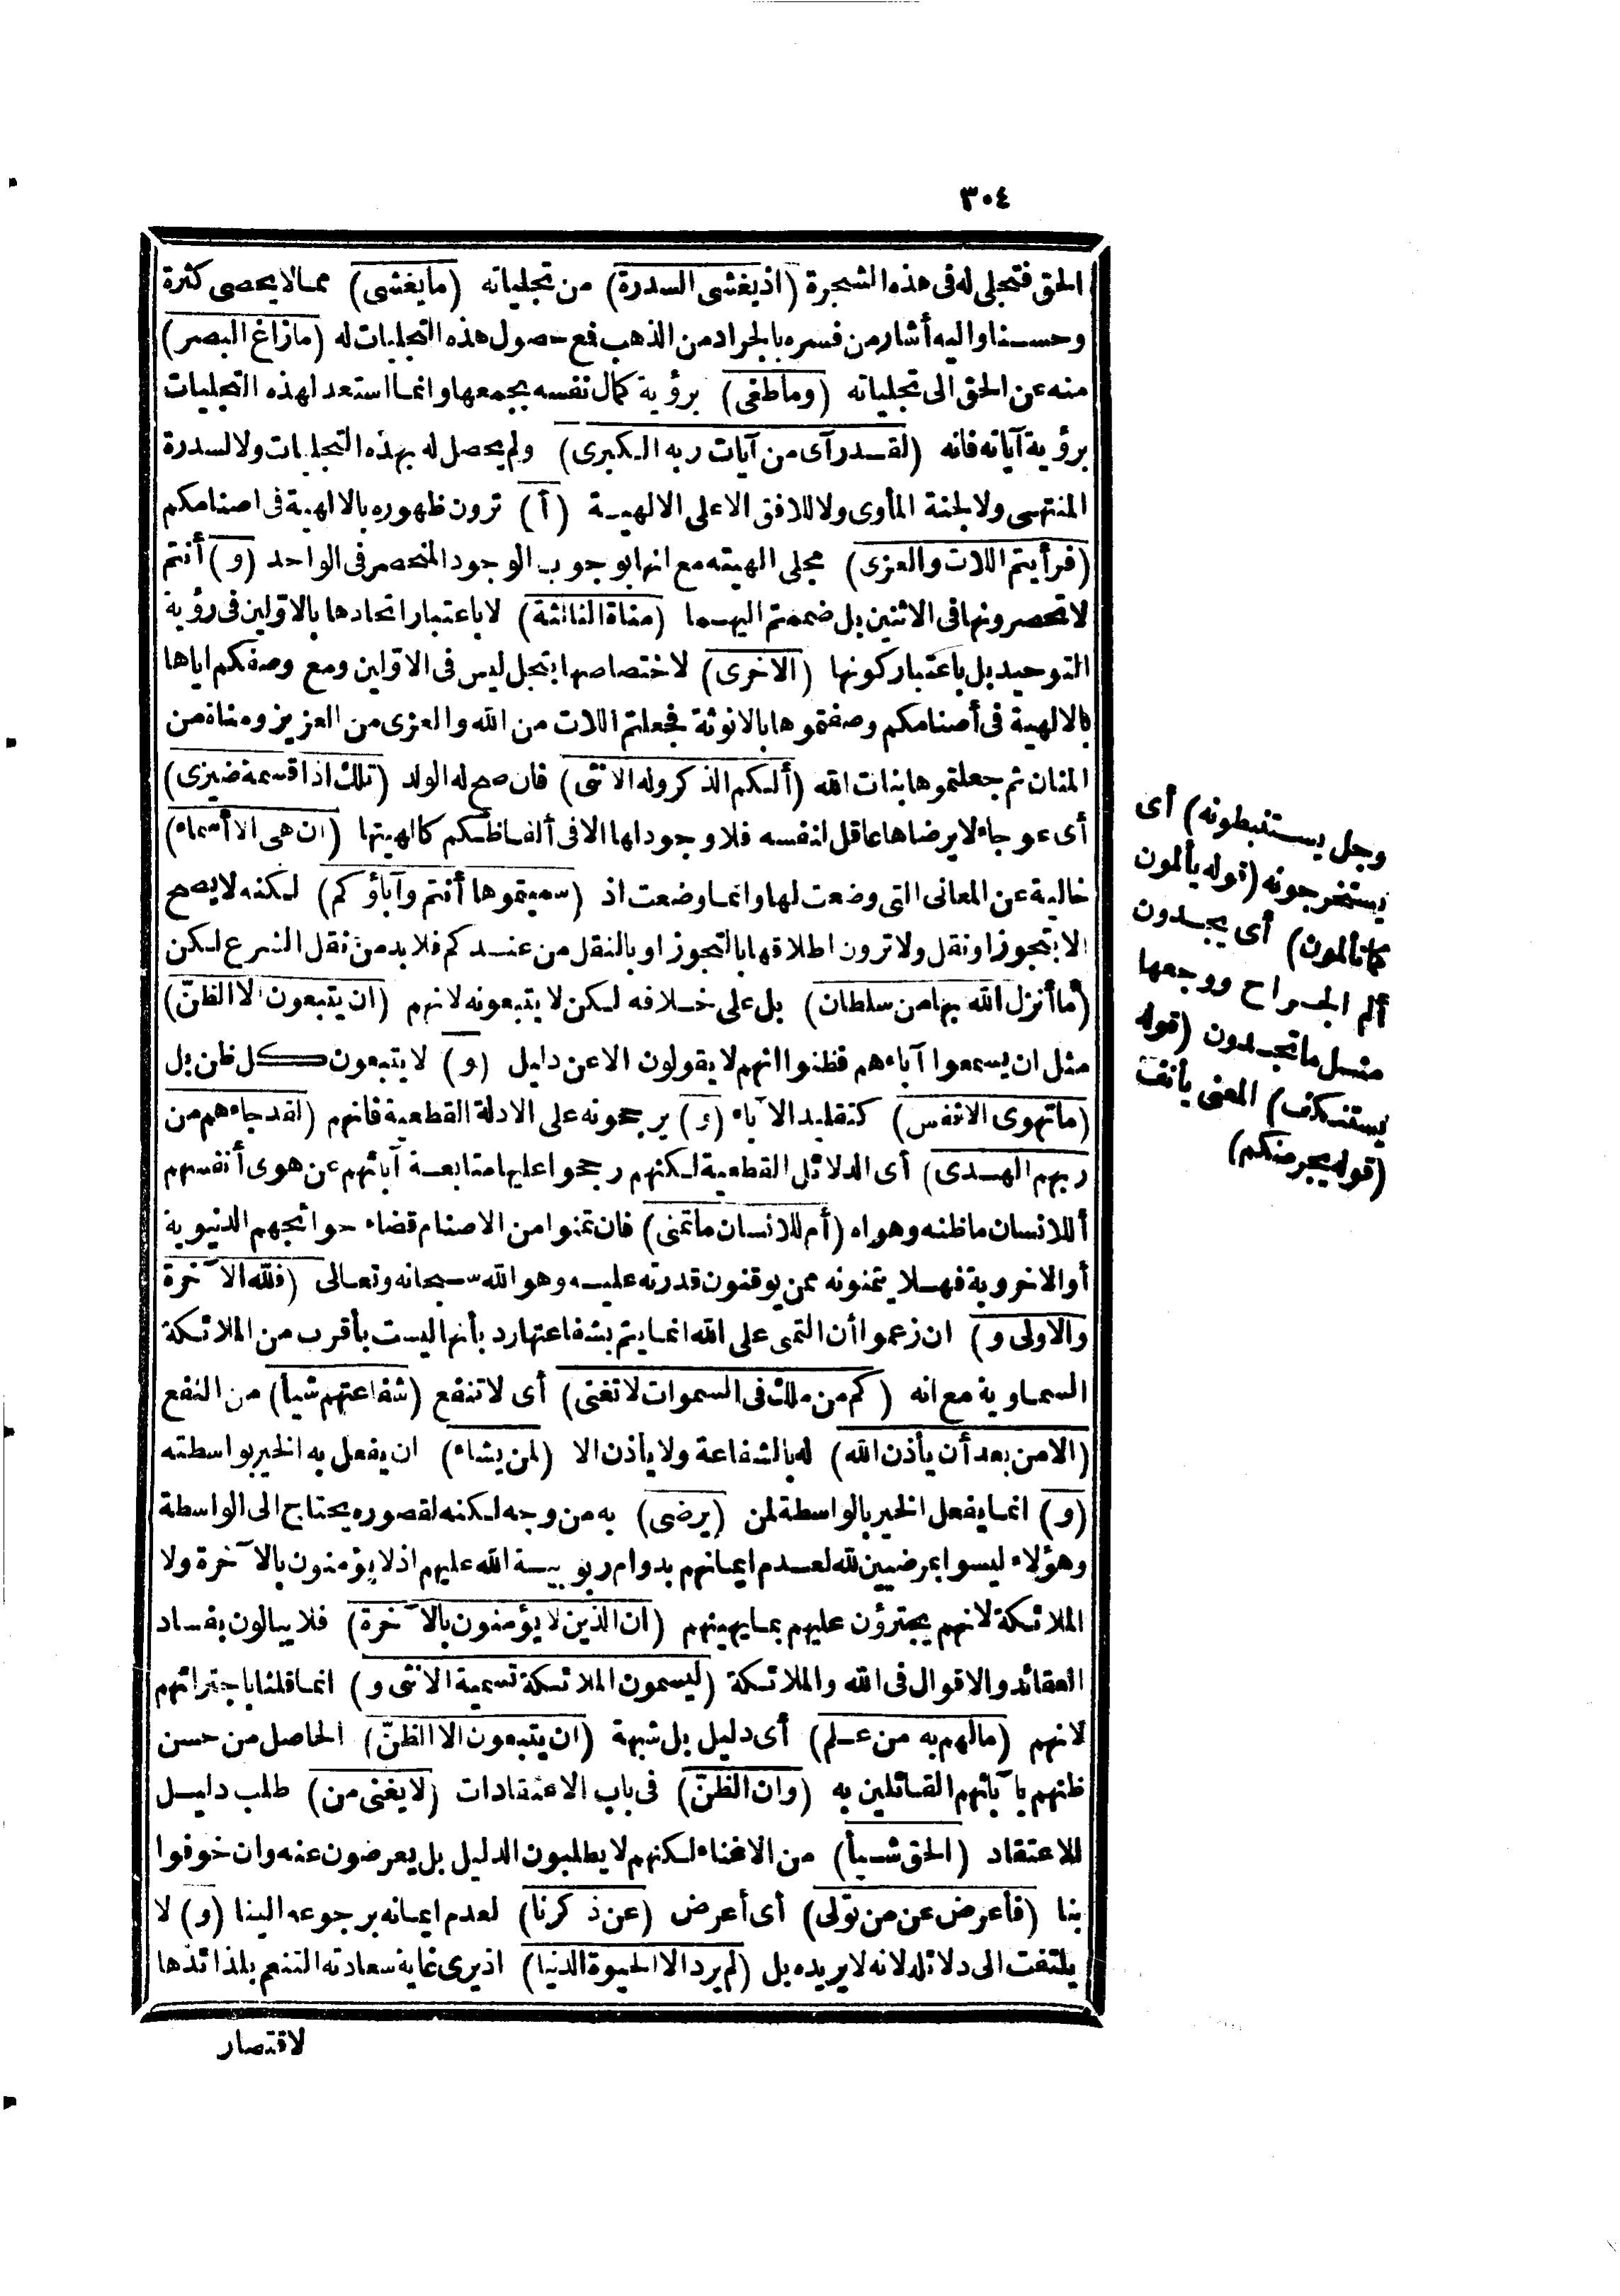 ٣٠٤
الحق فتجلى له فى هذه الشجرة (اذ يغشى السدرة) من تجلياته (ما يغشى) مما لا يحصى كثرة
وحسنا واليه أشار من فسره بالجراد من الذهب فع حصول هذه التجليات له (ما زاغ البصر)
منه عن الحق الى تجلياته (وما طغى) برؤية كمال نفسه بجمعها وانما استعد لهذه التجليات
برؤية آياته فانه (لقد رآى من آيات ربه الكبرى) ولم يحصل له بهذه التجليات ولا لسدرة
المنتهى ولا لجنة المأوى ولا للافق الاعلى الالهية (أ) ترون ظهوره بالالهية فى اصنامكم
(فرأيتم اللات والعزى) مجلى الهيته مع انها بوجوب الوجود المنحصر فى الواحد (و) أنتم
لا تحصرونها فى الاثنين بل ضممتم اليهما (مناة الثالثة) لا باعتبار اتحادها بالاوّلين فى رؤية
التوحيد بل باعتبار كونها (الاخرى) لاختصاصها بتجل ليس فى الاوّلين ومع وصفكم اياها
بالالهية فى أصنامكم وصفتموها بالانوثة فجعلتم اللات من الله والعزى من العزيز ومناة من
المنان ثم جعلتموها بنات الله (ألكم الذكر وله الانثى) فان صح له الولد (تلك اذا قسمة ضيزى)
أى عوجاء لا يرضاها عاقل لنفسه فلا وجود لها الا فى ألفاظكم كالهيتها (ان هى الا أسماء)
خالية عن المعانى التى وضعت لها وانما وضعت اذ (سميتموها أنتم وآباؤكم) لكنه لا يصح
الا بتجوز او نقل ولا ترون اطلاقها بالتجوز او بالنقل من عندكم فلا بد من نقل الشرع لكن
(ما أنزل الله بها من سلطان) بل على خلافه لكن لا يتبعونه لانهم (ان يتبعون الا الظنّ)
مثل ان يسمعوا آباءهم فظنوا انهم لا يقولون الا عن دليل (و) لا يتبعون كل ظن بل
(ما تهوى الانفس) كتقليد الآباء (و) يرجحونه على الادلة القطعية فانهم (لقد جاءهم من
ربهم الهدى) أى الدلائل القطعية لكنهم رجحوا عليها متابعة آبائهم عن هوى أنفسهم
أللانسان ما ظنه وهواه (أم للانسان ما تمنى) فان تمنوا من الاصنام قضاء حوائجهم الدنيوية
أو الاخروية فهلا يتمنونه ممن يوقنون قدرته عليه وهو الله سبحانه وتعالى (فلله الآخرة
والاولى و) ان زعموا أن التمنى على الله انما يتم بشفاعتها رد بأنها ليست بأقرب من الملائكة
السماوية مع انه (كم من ملك فى السموات لا تغنى) أى لا تنفع (شفاعتهم شيأ) من النفع
(الا من بعد أن يأذن الله) له بالشفاعة ولا يأذن الا (لمن يشاء) ان يفعل به الخير بواسطته
(و) انما يفعل الخير بالواسطة لمن (يرضى) به من وجه لكنه لقصوره يحتاج الى الواسطة
وهؤلاء ليسوا بمرضيين لله لعدم ايمانهم بدوام ربوبية الله عليهم اذ لا يؤمنون بالآخرة ولا
الملائكة لانهم يجترؤن عليهم بما يهينهم (ان الذين لا يؤمنون بالآخرة) فلا يبالون بفساد
العقائد والاقوال فى الله والملائكة (ليسمون الملائكة تسمية الانثى و) انما قلنا باجترائهم
لانهم (ما لهم به من علم) أى دليل بل شبهة (ان يتبعون الا الظنّ) الحاصل من حسن
ظنهم بآبائهم القائلين به (وان الظنّ) فى باب الاعتقادات (لا يغنى من) طلب دليل
للاعتقاد (الحق شيأ) من الاغناء لكنهم لا يطلبون الدليل بل يعرضون عنه وان خوفوا
بنا (فأعرض عن من تولى) أى أعرض (عن ذكرنا) لعدم ايمانه برجوعه الينا (و) لا
يلتفت الى دلائله لانه لا يريده بل (لم يرد الا الحيوة الدنيا) اذ يرى غاية سعادته التنعم بلذائذها
لاقتصار
وجل يستنبطونه) أى
يستخرجونه (قوله يألمون
كما تألمون) أى يجدون
ألم الجراح ووجعها
مثل ما تجدون (قوله
يستنكف) المعنى يأنف
(قوله يجرمنكم)